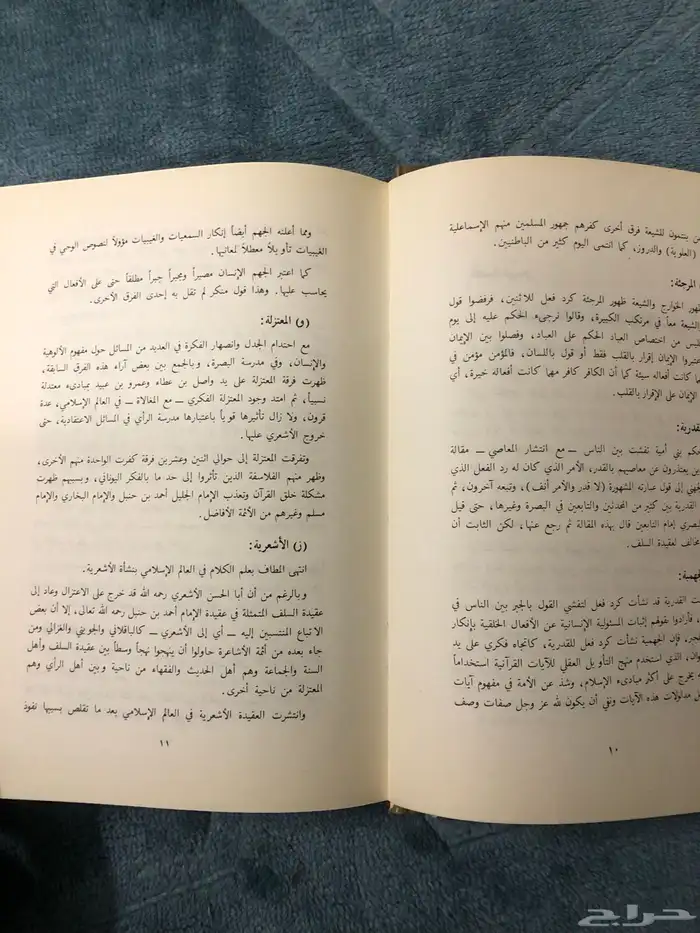 من ينتمون للشيعة فرق أخرى كفرهم جمهور المسلمين منهم الإسماعلية
(العلوية) والدروز، كما انتمى اليوم كثير من الباطنيين.
المرجئة:
ظهور الخوارج والشيعة ظهور المرجئة كرد فعل للاثنين، فرفضوا قول
الشيعة معاً في مرتكب الكبيرة، وقالوا نرجىء الحكم عليه إلى يوم
فليس من اختصاص العباد الحكم على العباد، وفصلوا بين الإيمان
اعتبروا الإيمان إقرار بالقلب فقط أو قول باللسان، فالمؤمن مؤمن في
مهما كانت أفعاله سيئة كما أن الكافر كافر مهما كانت أفعاله خيرة، أي
الإيمان على الإقرار بالقلب.
القدرية:
حكم بني أمية تفشت بين الناس ـ مع انتشار المعاصي ـ مقالة
يعتذرون عن معاصيهم بالقدر، الأمر الذي كان له رد الفعل الذي
الجهني إلى قول عبارته المشهورة (لا قدر والأمر أنف)، وتبعه آخرون، ثم
القدرية بين كثير من المحدثين والتابعين في البصرة وغيرها، حتى قيل
البصري إمام التابعين قال بهذه المقالة ثم رجع عنها، لكن الثابت أن
مخالف لعقيدة السلف.
الجهمية:
القدرية قد نشأت كرد فعل لتفشي القول بالجبر بين الناس في
، فأرادوا بقولهم إثبات المسئولية الإنسانية عن الأفعال الخلقية بإنكار
الجبر، فإن الجهمية نشأت كرد فعل للقدرية، كاتجاه فكري على يد
الذي استخدم منهج التأويل العقلي للآيات القرآنية استخداماً
يخرج على أكثر مبادىء الإسلام، وشذ عن الأمة في مفهوم آيات
مدلولات هذه الآيات ونفي أن يكون لله عز وجل صفات وصف
١٠
ومما أعلنه الجهم أيضاً إنكار السمعيات والغيبيات مؤولاً لنصوص الوحي في
الغيبيات تأويلاً معطلاً لمعانيها.
كما اعتبر الجهم الإنسان مصيراً ومجبراً جبراً مطلقاً حتى على الأفعال التي
يحاسب عليها. وهذا قول منكر لم تقل به إحدى الفرق الأخرى.
(و) المعتزلة:
مع احتدام الجدل وانصهار الفكرة في العديد من المسائل حول مفهوم الألوهية
والإنسان، وفي مدرسة البصرة، وبالجمع بين بعض آراء هذه الفرق السابقة،
ظهرت فرقة المعتزلة على يد واصل بن عطاء وعمرو بن عبيد بمبادىء معتدلة
نسبياً، ثم امتد وجود المعتزلة الفكري ـ مع المغالاة ـ في العالم الإسلامي، عدة
قرون، ولا زال تأثيرها قوياً باعتبارها مدرسة الرأي في المسائل الاعتقادية، حتى
خروج الأشعري عليها.
وتفرقت المعتزلة إلى حوالي اثنين وعشرين فرقة كفرت الواحدة منهم الأخرى،
وظهر منهم الفلاسفة الذين تأثروا إلى حد ما بالفكر اليوناني، وبسببهم ظهرت
مشكلة خلق القرآن وتعذب الإمام الجليل أحمد بن حنبل والإمام البخاري والإمام
مسلم وغيرهم من الأئمة الأفاضل.
(ز) الأشعرية:
انتهى المطاف بعلم الكلام في العالم الإسلامي بنشأة الأشعرية.
وبالرغم من أن أبا الحسن الأشعري رحمه الله قد خرج على الاعتزال وعاد إلى
عقيدة السلف المتمثلة في عقيدة الإمام أحمد بن حنبل رحمه الله تعالى، إلا أن بعض
الاتباع المنتسبين إليه ـ أي إلى الأشعري ـ كالباقلاني والجويني والغزالي ومن
جاء بعده من أئمة الأشاعرة حاولوا أن ينهجوا نهجاً وسطاً بين عقيدة السلف وأهل
السنة والجماعة وهم أهل الحديث والفقهاء من ناحية وبين أهل الرأي وهم
المعتزلة من ناحية أخرى.
وانتشرت العقيدة الأشعرية في العالم الإسلامي بعد ما تقلص بسببها نفوذ
١١
حراج